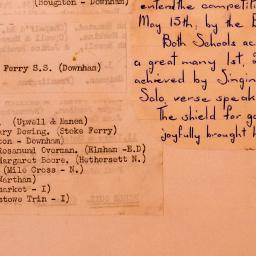 (Houghton - Downham)
Ferry S.S. (Downham)
. (Upwell & Manea)
ary Dowing. (Stoke Ferry)
ton - Downham)
Rosamund Overman. (Elmham -E.D)
Margaret Boore. (Hethersett N.)
(Mile Cross - N.)
Wartham)
market - I)
stowe Trin - I)
entered the competiti
May 15th, by the E
Both Schools ac
a great many 1st,
achieved by Singin
Solo, verse speak
The shield for go
joyfully brought h